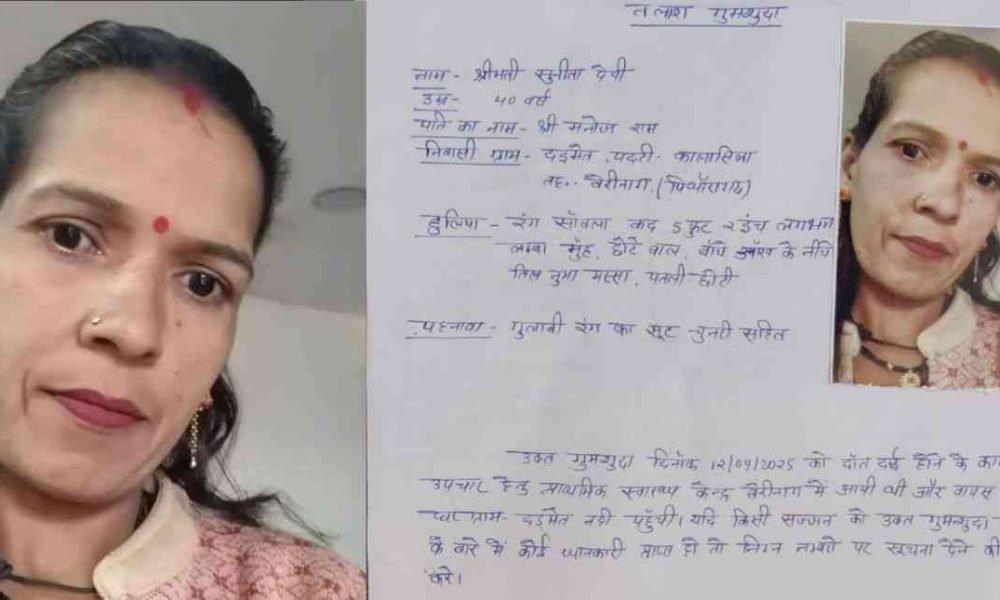 तलाश गुमशुदा
नाम - श्रीमती सुनीता देवी
उम्र - ४० वर्ष
पति का नाम - श्री मनोज राम
निवासी ग्राम - दड़मेत, पट्टी -
तह०- बेरीनाग, (पिथौरागढ़)
हुलिया - रंग साँवला कद 5 फुट २ इंच लगभग
लम्बा मुँह, छोटे बाल, बाँये आँख के नीचे
तिल नुमा मस्सा, पतली छोटी
पहनावा - गुलाबी रंग का सूट चुनरी सहित
उक्त गुमशुदा दिनाँक 12/09/2025 को दाँत दर्द होने के
उपचार हेतु प्राथमिक स्वास्थ्य केन्द्र बेरीनाग में आयी थी और वापस
घर ग्राम- दड़मेत नही पहुँची। यदि किसी सज्जन को उक्त गुमशुदा
के बारे में कोई जानकारी प्राप्त हो तो निम्न नम्बरों पर सूचना देने की
करे।